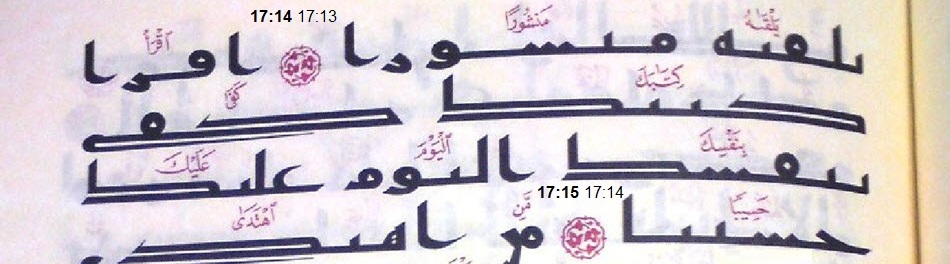 17:14 17:13
يَلْقَىٰهُ مَنشُورًا ٱقْرَأْ
يلقىه منشورا اقرا
كِتَـٰبَكَ كَفَىٰ
كتبك كفى
بِنَفْسِكَ ٱلْيَوْمَ عَلَيْكَ
بنفسك اليوم عليك
17:15 17:14
حَسِيبًا مَّنِ ٱهْتَدَىٰ
حسيبا من اهتدى